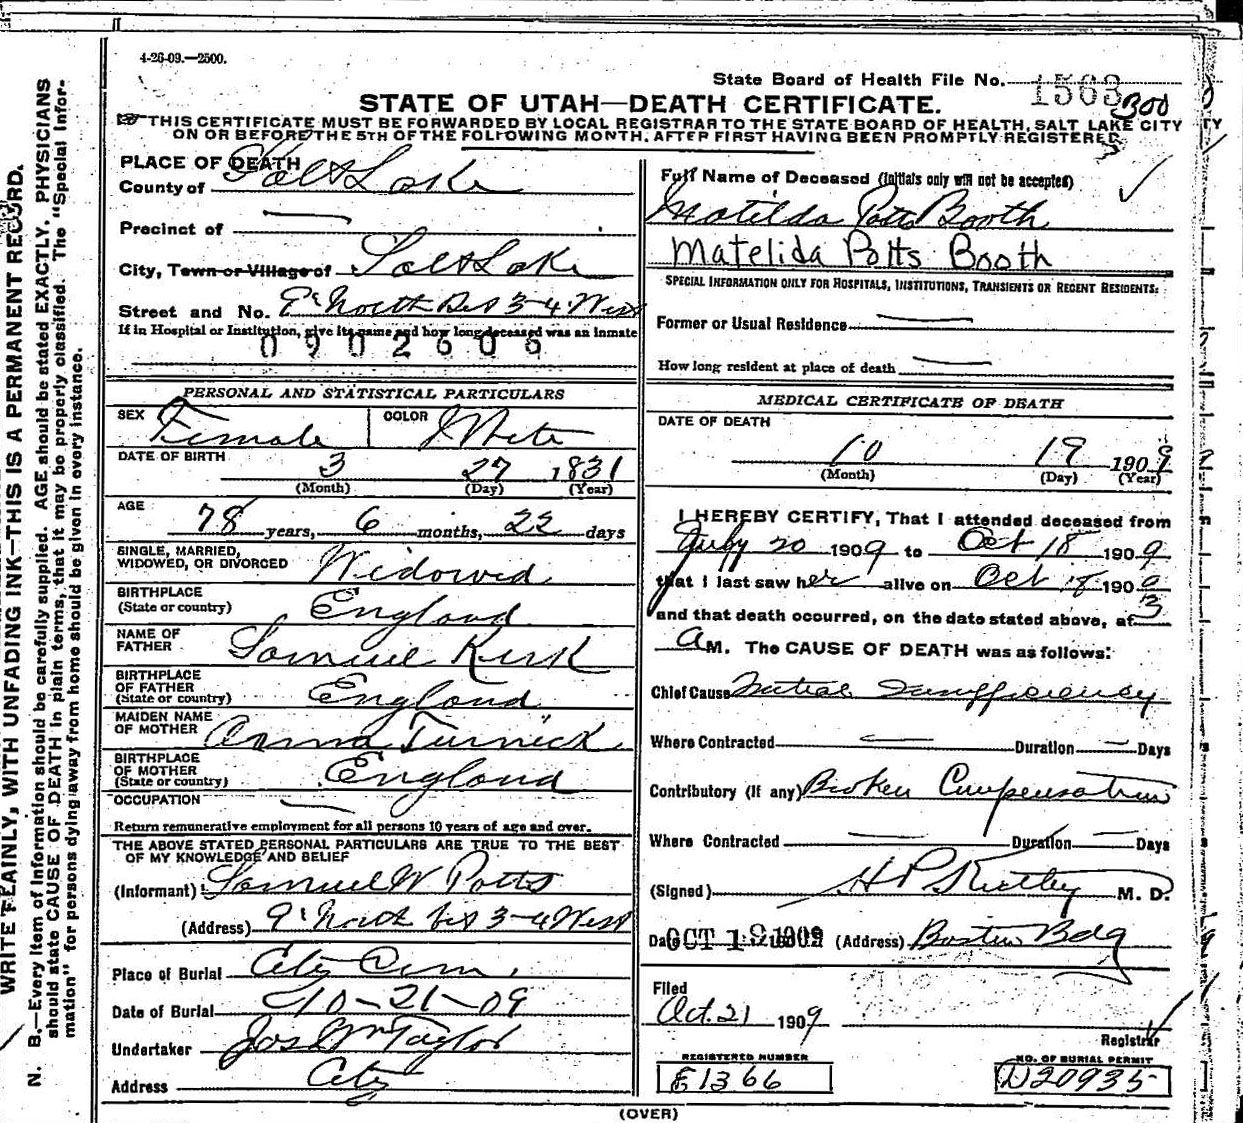 4-26-09.—2500.
State Board of Health File No. 1563
300
STATE OF UTAH—DEATH CERTIFICATE.
THIS CERTIFICATE MUST BE FORWARDED BY LOCAL REGISTRAR TO THE STATE BOARD OF HEALTH, SALT LAKE CITY
ON OR BEFORE THE 5TH OF THE FOLLOWING MONTH, AFTER FIRST HAVING BEEN PROMPTLY REGISTERED
WRITE PLAINLY, WITH UNFADING INK—THIS IS A PERMANENT RECORD.
N. B.—Every item of information should be carefully supplied. AGE should be stated EXACTLY. PHYSICIANS
should state CAUSE OF DEATH in plain terms, that it may be properly classified. The "Special Infor-
mation" for persons dying away from home should be given in every instance.
PLACE OF DEATH
County of Salt Lake
Precinct of —
City, Town or Village of Salt Lake
Street and No. North Bet 3-4 West
If in Hospital or Institution, give its name and how long deceased was an inmate
0902606
PERSONAL AND STATISTICAL PARTICULARS
SEX Female COLOR White
DATE OF BIRTH 3 27 1831
(Month) (Day) (Year)
AGE 78 years, 6 months, 22 days
SINGLE, MARRIED,
WIDOWED, OR DIVORCED Widowed
BIRTHPLACE
(State or country) England
NAME OF
FATHER Samuel Kirk
BIRTHPLACE
OF FATHER
(State or country) England
MAIDEN NAME
OF MOTHER Anna Turnick
BIRTHPLACE
OF MOTHER
(State or country) England
OCCUPATION —
Return remunerative employment for all persons 10 years of age and over.
THE ABOVE STATED PERSONAL PARTICULARS ARE TRUE TO THE BEST
OF MY KNOWLEDGE AND BELIEF
(Informant) Samuel W Potts
(Address) North bet 3-4 West
Place of Burial City Cem.
Date of Burial 10-21-09
Undertaker Jos Wm Taylor
Address City
Full Name of Deceased (Initials only will not be accepted)
Matilda Potts Booth
Matelida Potts Booth
SPECIAL INFORMATION ONLY FOR HOSPITALS, INSTITUTIONS, TRANSIENTS OR RECENT RESIDENTS:
Former or Usual Residence —
How long resident at place of death —
MEDICAL CERTIFICATE OF DEATH
DATE OF DEATH
10 19 1909
(Month) (Day) (Year)
I HEREBY CERTIFY, That I attended deceased from
July 20 1909 to Oct 18 1909
that I last saw her alive on Oct 18 1909
and that death occurred, on the date stated above, at 3
A M. The CAUSE OF DEATH was as follows:
Chief Cause Mitral Insufficiency
Where Contracted — Duration — Days
Contributory (if any) Broken Compensation
Where Contracted — Duration — Days
(Signed) H P M. D.
Date OCT 19 1909 (Address) Boston Bdg
Filed
Oct. 21 1909
Registrar
REGISTERED NUMBER
E1366
NO. OF BURIAL PERMIT
D20935
(OVER)